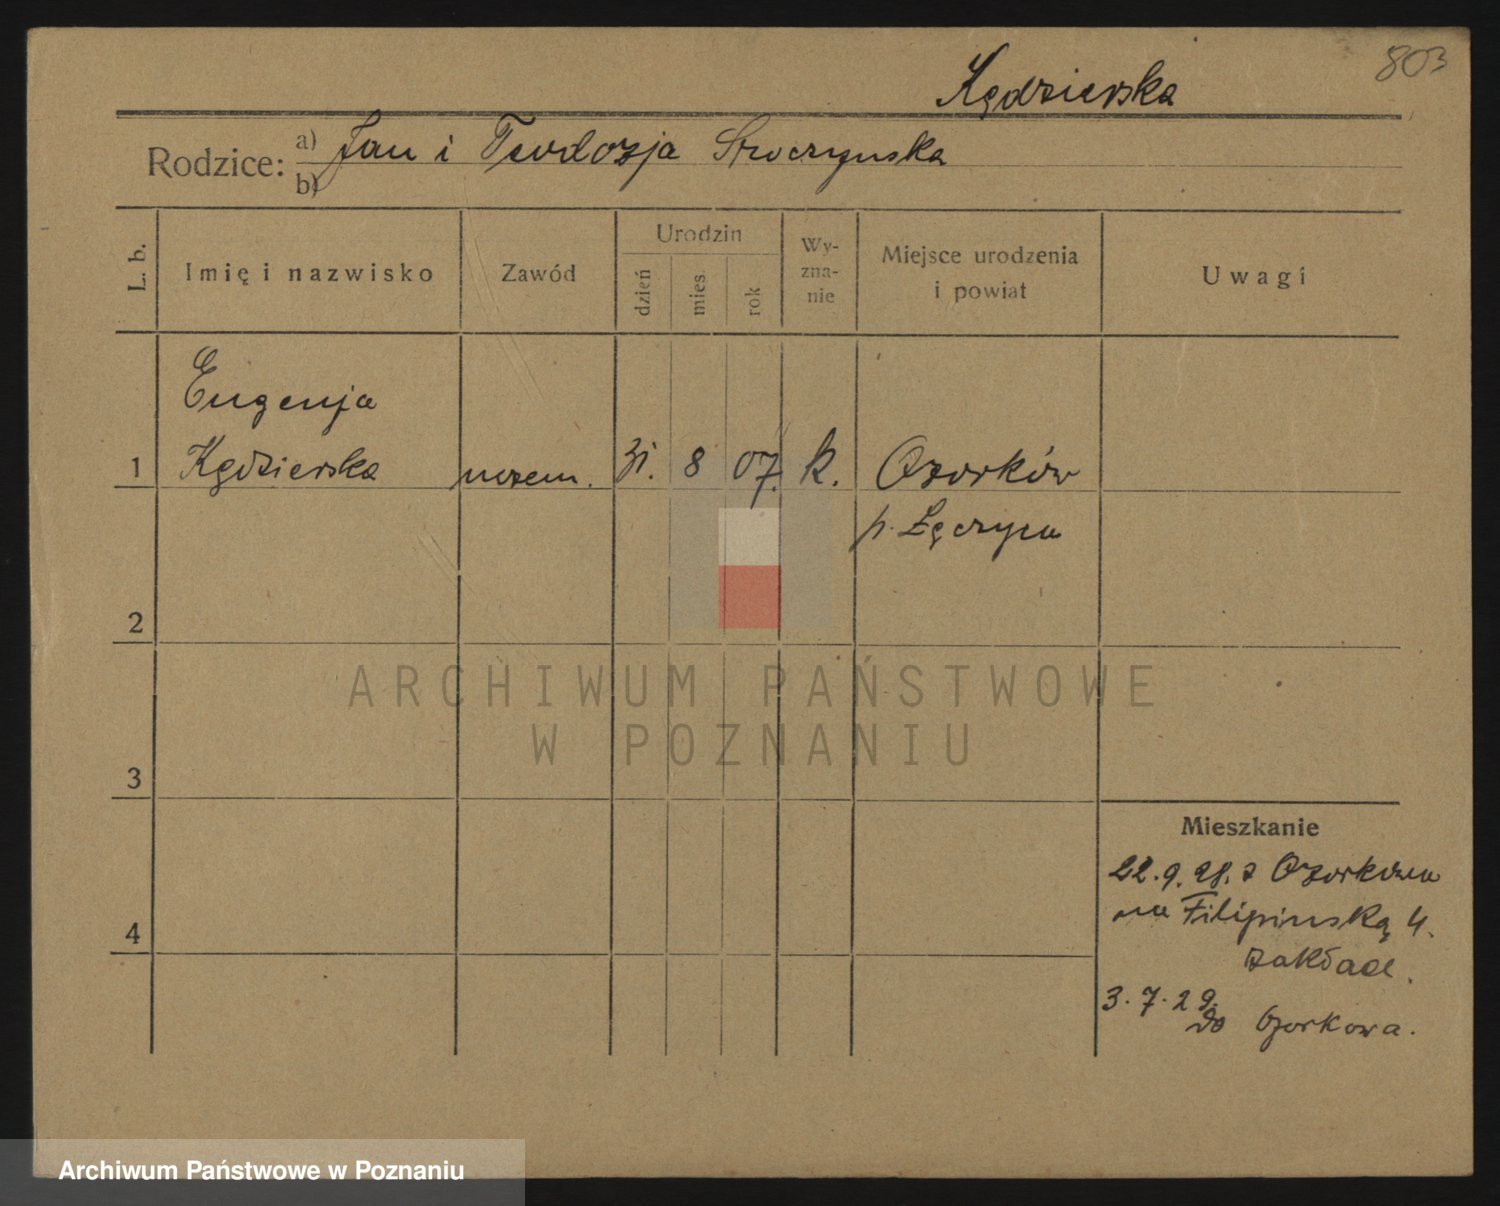 803
Kędzierska
Rodzice: a) Jan i Teodozja Sroczynska
b)
L. b.
Imię i nazwisko
Zawód
Urodzin
dzień
mies.
rok
Wy-
zna-
nie
Miejsce urodzenia
i powiat
Uwagi
Eugenja
1 Kędzierska uczen. 31. 8 07. k. Ozorków
p. Łęczyca
2
ARCHIWUM PAŃSTWOWE
W POZNANIU
3
Mieszkanie
22.9.28. z Ozorkowa
na Filipinską 4.
zakład.
4
3.7.29.
do Ozorkowa.
Archiwum Państwowe w Poznaniu